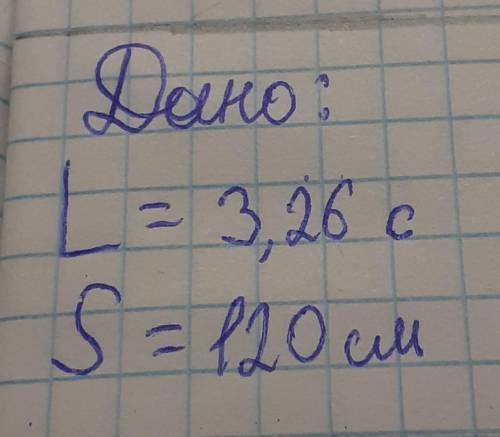 Дано:
L = 3,26 с
S = 120 см